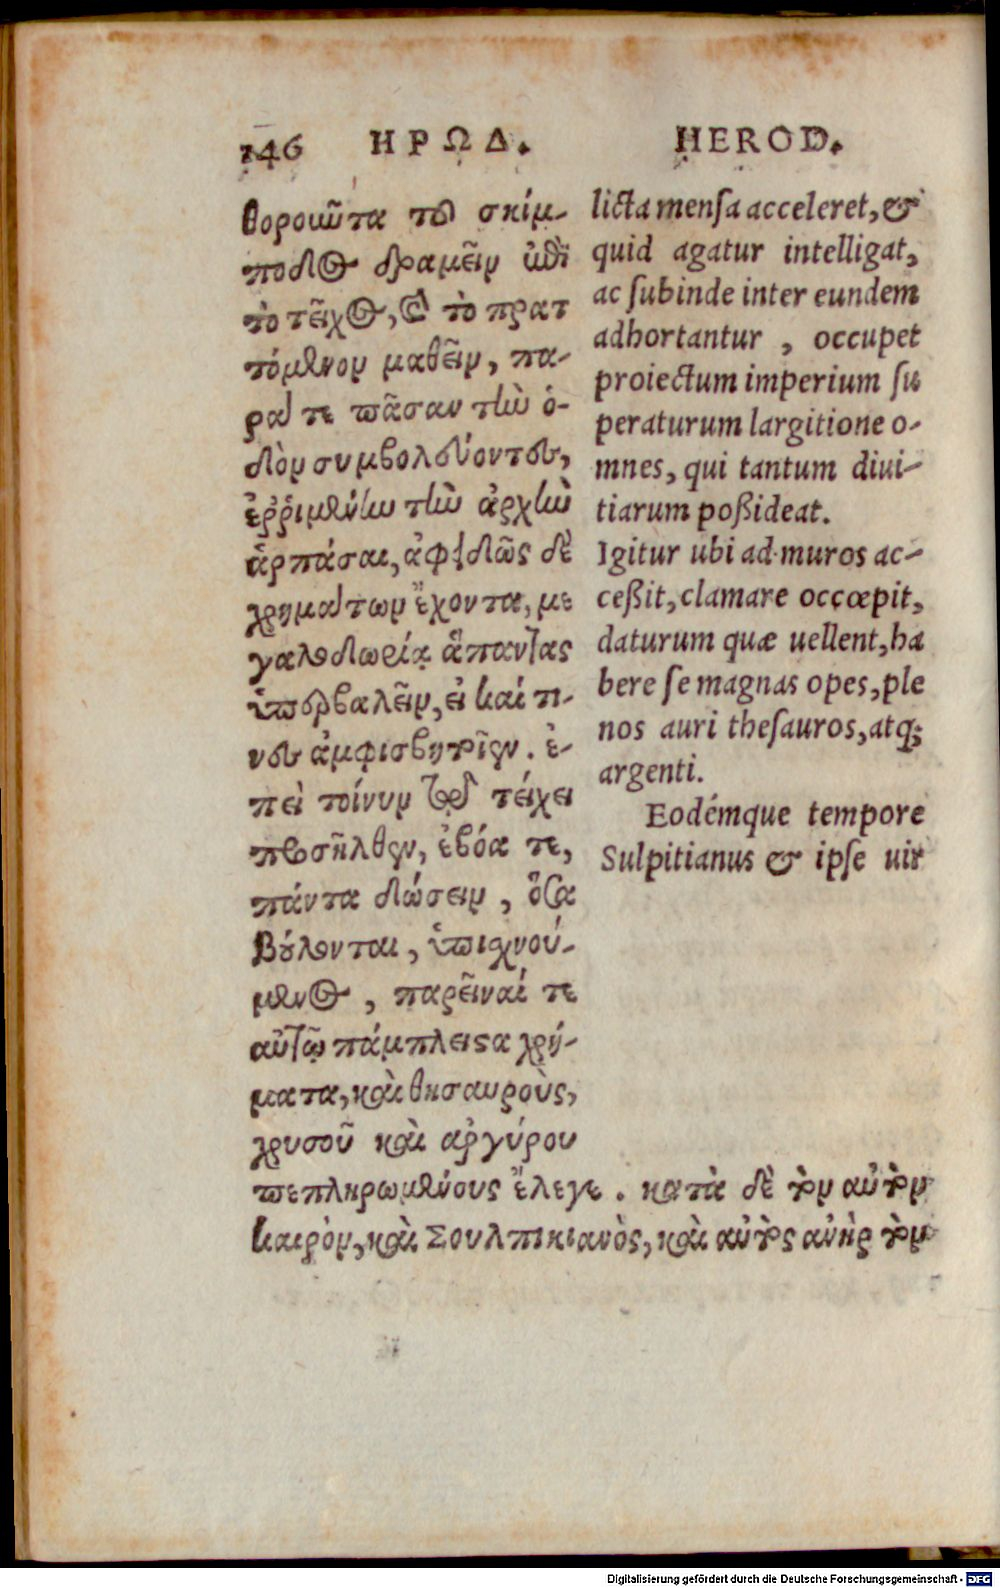 146 ΗΡΩΔ. HEROD.
θοροῦντα τοῦ σκίμ-
ποδος δραμεῖν ἐπὶ
τὸ τεῖχος, καὶ τὸ πρατ
τόμενον μαθεῖν, πα-
ρά τε πᾶσαν τὴν ὁ-
δὸν συμβολεύοντες,
ἐῤῥιμένην τὴν ἀρχὴν
ἁρπάσαι, ἀφειδῶς δὲ
χρημάτων ἔχοντα, με
γαλοδωρίᾳ ἅπαντας
ὑπερβαλεῖν, εἰ καί τι-
νες ἀμφισβητοῖεν. ἐ-
πεὶ τοίνυν τῷ τείχει
προσῆλθεν, ἐβόα τε,
πάντα δώσειν, ὅσα
βούλονται, ὑπισχνού-
μενος, παρεῖναί τε
αὐτῷ πάμπλειστα χρή-
ματα, καὶ θησαυροὺς,
χρυσοῦ καὶ αργύρου
πεπληρωμένους ἔλεγε. κατὰ δὲ τὸν αὐτὸν
καιρὸν, καὶ Σουλπικιανὸς, καὶ αὐτὸς ανὴρ τῶν
licta mensa acceleret, &
quid agatur intelligat,
ac ſubinde inter eundem
adhortantur, occupet
proiectum imperium ſu
peraturum largitione o-
mnes, qui tantum diui-
tiarum poßideat.
Igitur ubi ad muros ac-
ceßit, clamare occœpit,
daturum quæ uellent, ha
bere ſe magnas opes, ple
nos auri theſauros, atq;
argenti.
Eodémque tempore
Sulpitianus & ipſe uir
Digitalisierung gefördert durch die Deutsche Forschungsgemeinschaft - DFG